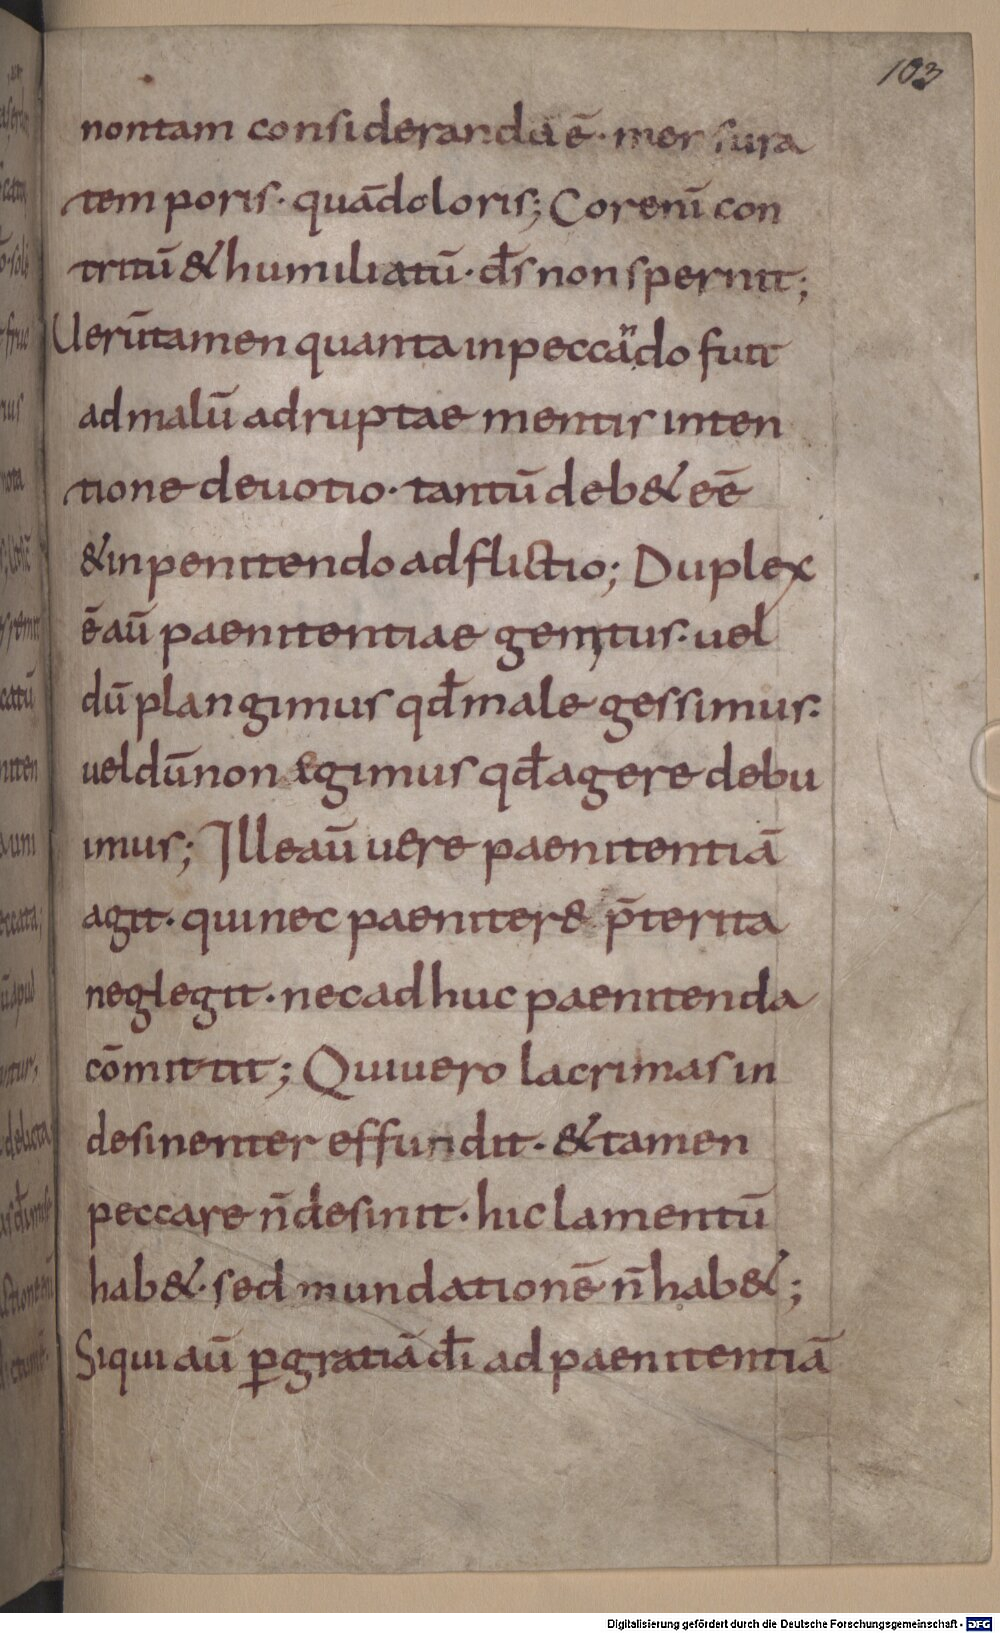 103
nontam consideranda ē· mensura
temporis· quā doloris; Cor enī con
tritū & humiliatū· d̄s non spernit;
Uerūtamen quanta in peccando fuit
ad malū adruptae mentis inten
tione deuotio· tantū deb& eē
& in penitendo adflictio; Duplex
ē aū paenitentiae gemitus· uel
dū plangimus qd̄ male gessimus·
uel dū non egimus qd̄ agere debu
imus; Ille aū uere paenitentiā
agit· qui nec paenitere p̄terita
neglegit· nec adhuc paenitenda
cōmittit; Qui uero lacrimas in
desinenter effundit· & tamen
peccare n̄ desinit· hic lamentū
hab& · sed mundationē n̄ hab&;
Siqui aū ꝑ gratiā dī ad paenitentiā
Digitalisierung gefördert durch die Deutsche Forschungsgemeinschaft - DFG